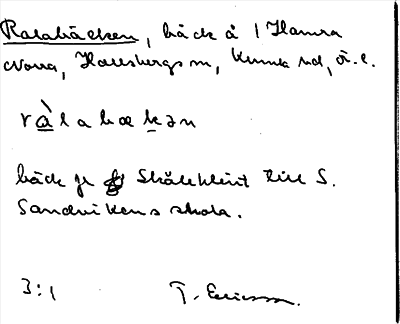 Ralabäcken, bäck å 1 Hamra
Norra, Hallsbergs sn, Kumla hd, Ö.l.
ràlabækən
bäck gm Skåleklint till S.
Sandvikens skola.
3:1 T. Ericsson.